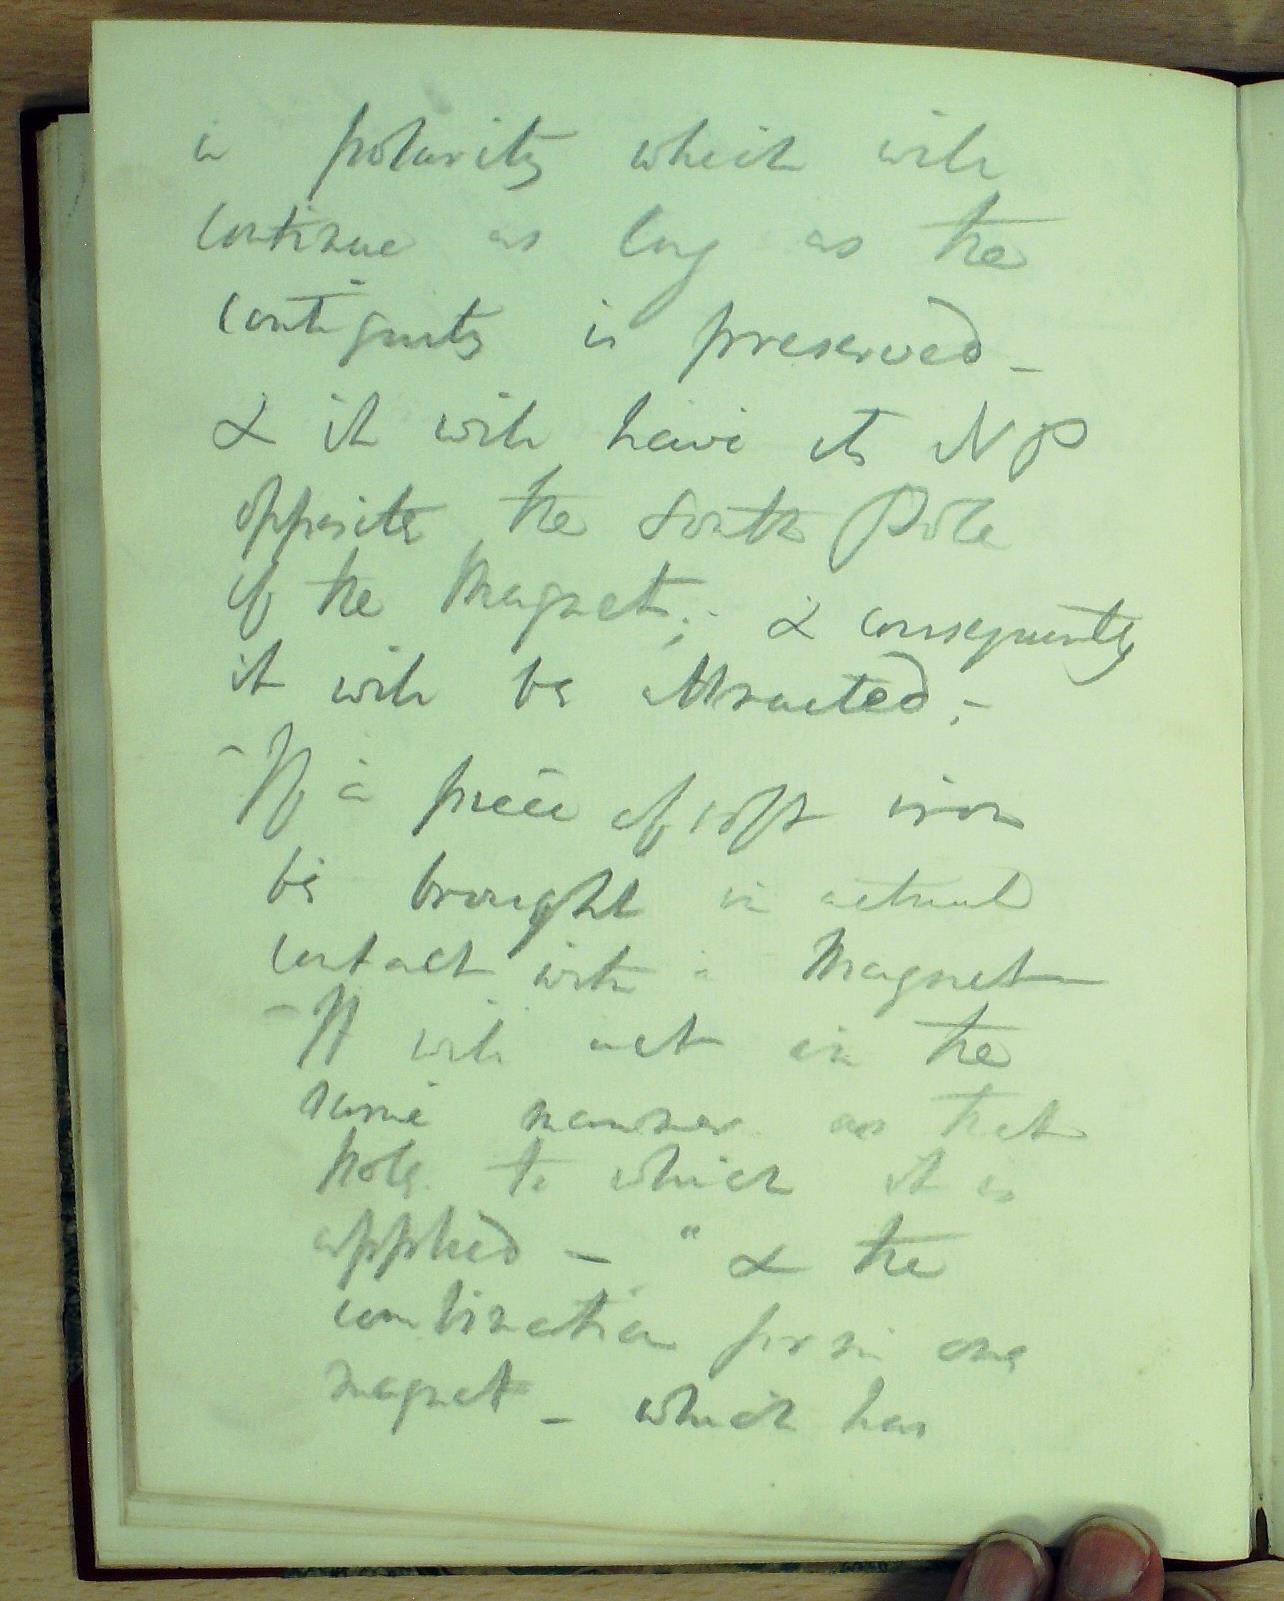 in polarity which will
continue as long as the
contiguity is preserved -
& it will have its N P
opposite the South Pole
of the Magnet; - & consequently
it will be attracted; -
- If a piece of soft iron
be brought in actual
contact with a Magnet
- It will act in the
same manner as that
pole to which it is
applied - " & the
combination form one
magnet - which has